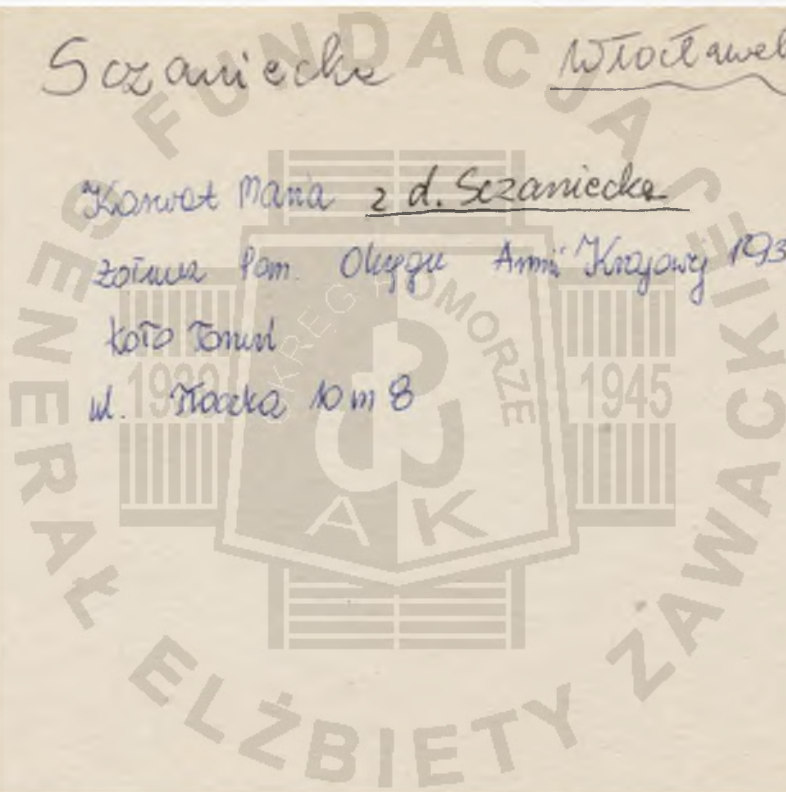 Sczaniecka Włocławek
Karwat Maria z d. Sczaniecka
żołnierz Pom. Okręgu Armii Krajowej 193
koło Toruń
ul. 10 m 8
FUNDACJA GENERAŁ ELŻBIETY ZAWACKIEJ
OKRĘG POMORZE
1939 1945
AK